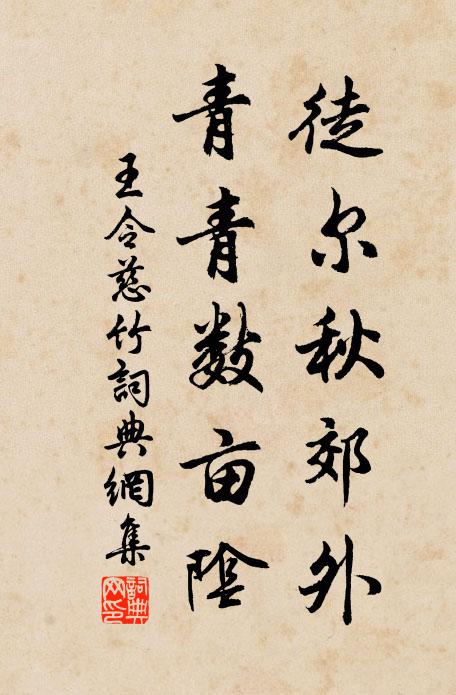 徒尔秋郊外
青青数亩陰
王令慈竹詞典網集
詞典網印